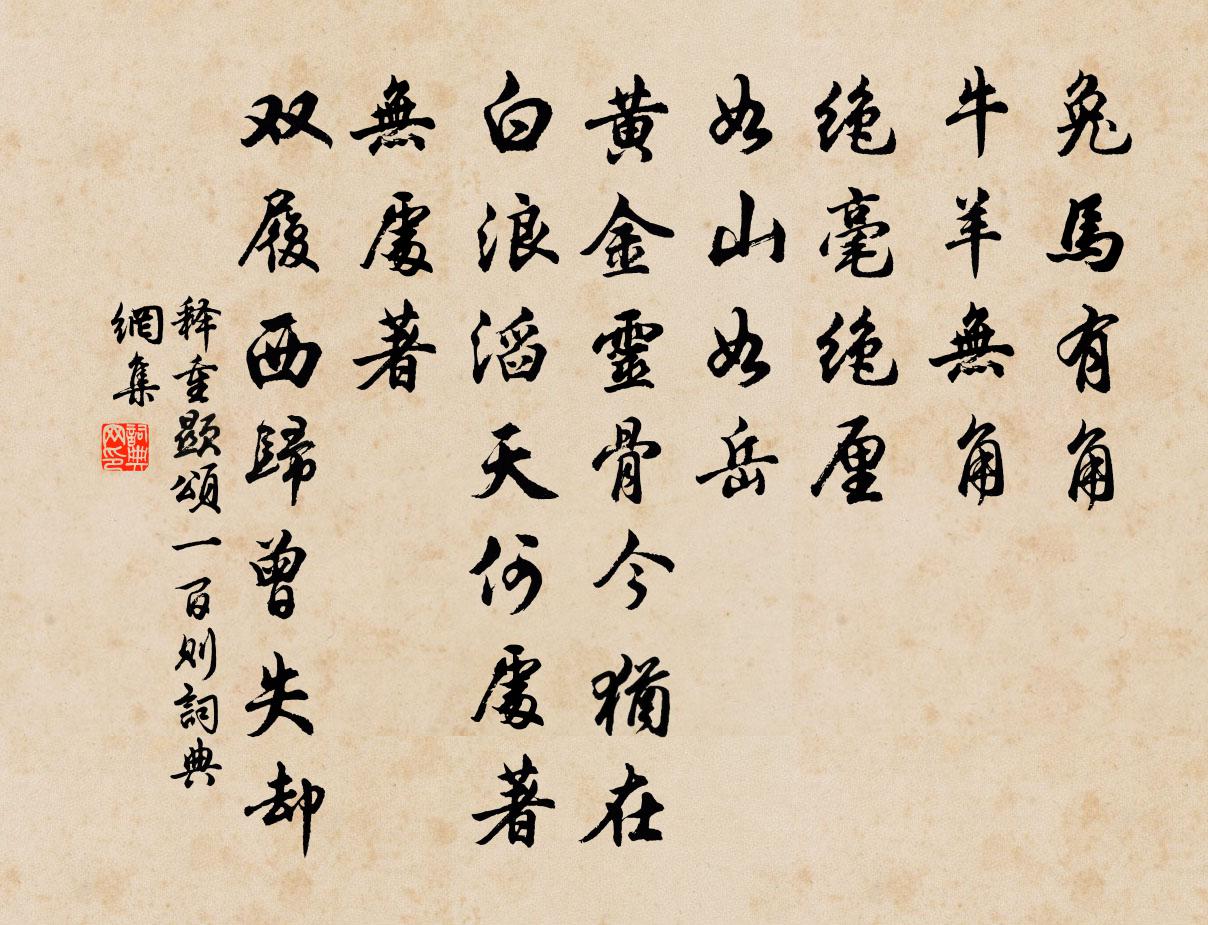 兔馬有角
牛羊無角
绝毫绝厘
如山如岳
黄金靈骨今猶在
白浪滔天何處著
無處著
双履西歸曾失却
释重顯頌一百则詞典
網集
詞典
网印